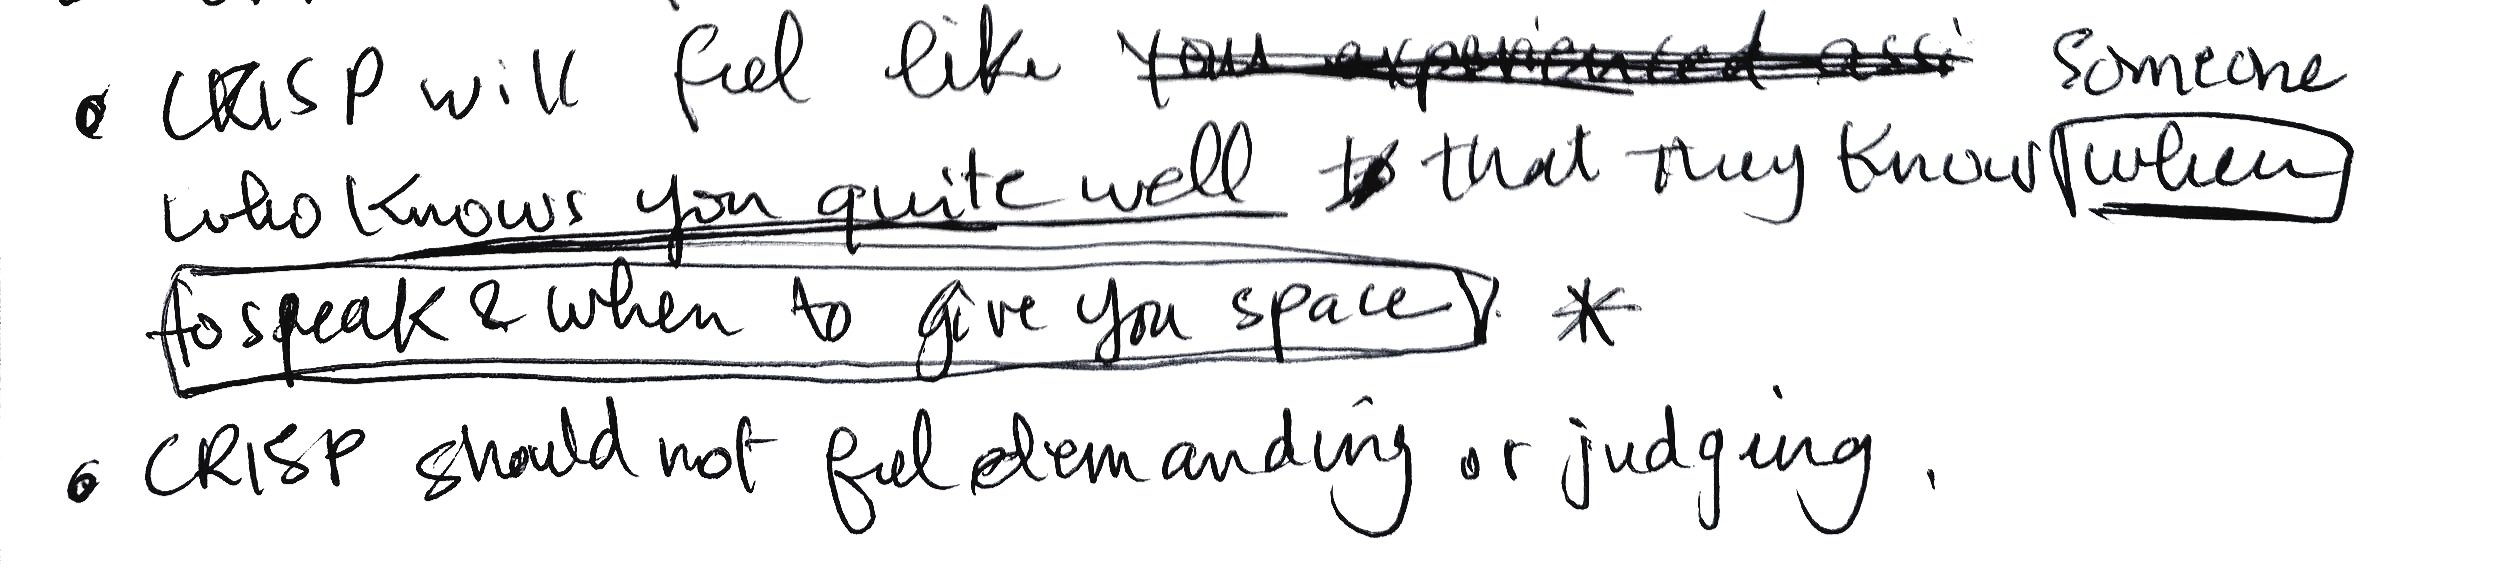 • CRISP will feel like your experienced assi Someone
who knows you quite well that they know when
to speak & when to give you space. *
• CRISP should not feel demanding or judging.